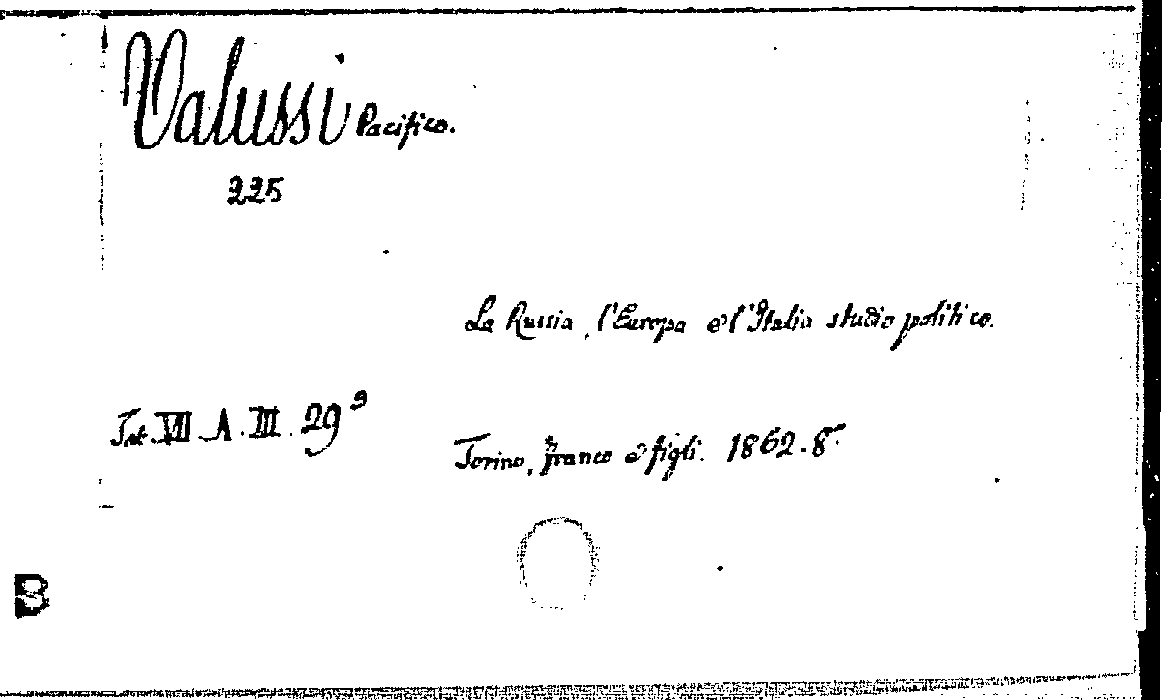 Valussi Pacifico.
225
La Russia, l'Europa e l'Italia studio politico.
Int. VII. A. III. 29⁹
Torino, franco e figli. 1862. 8°
B